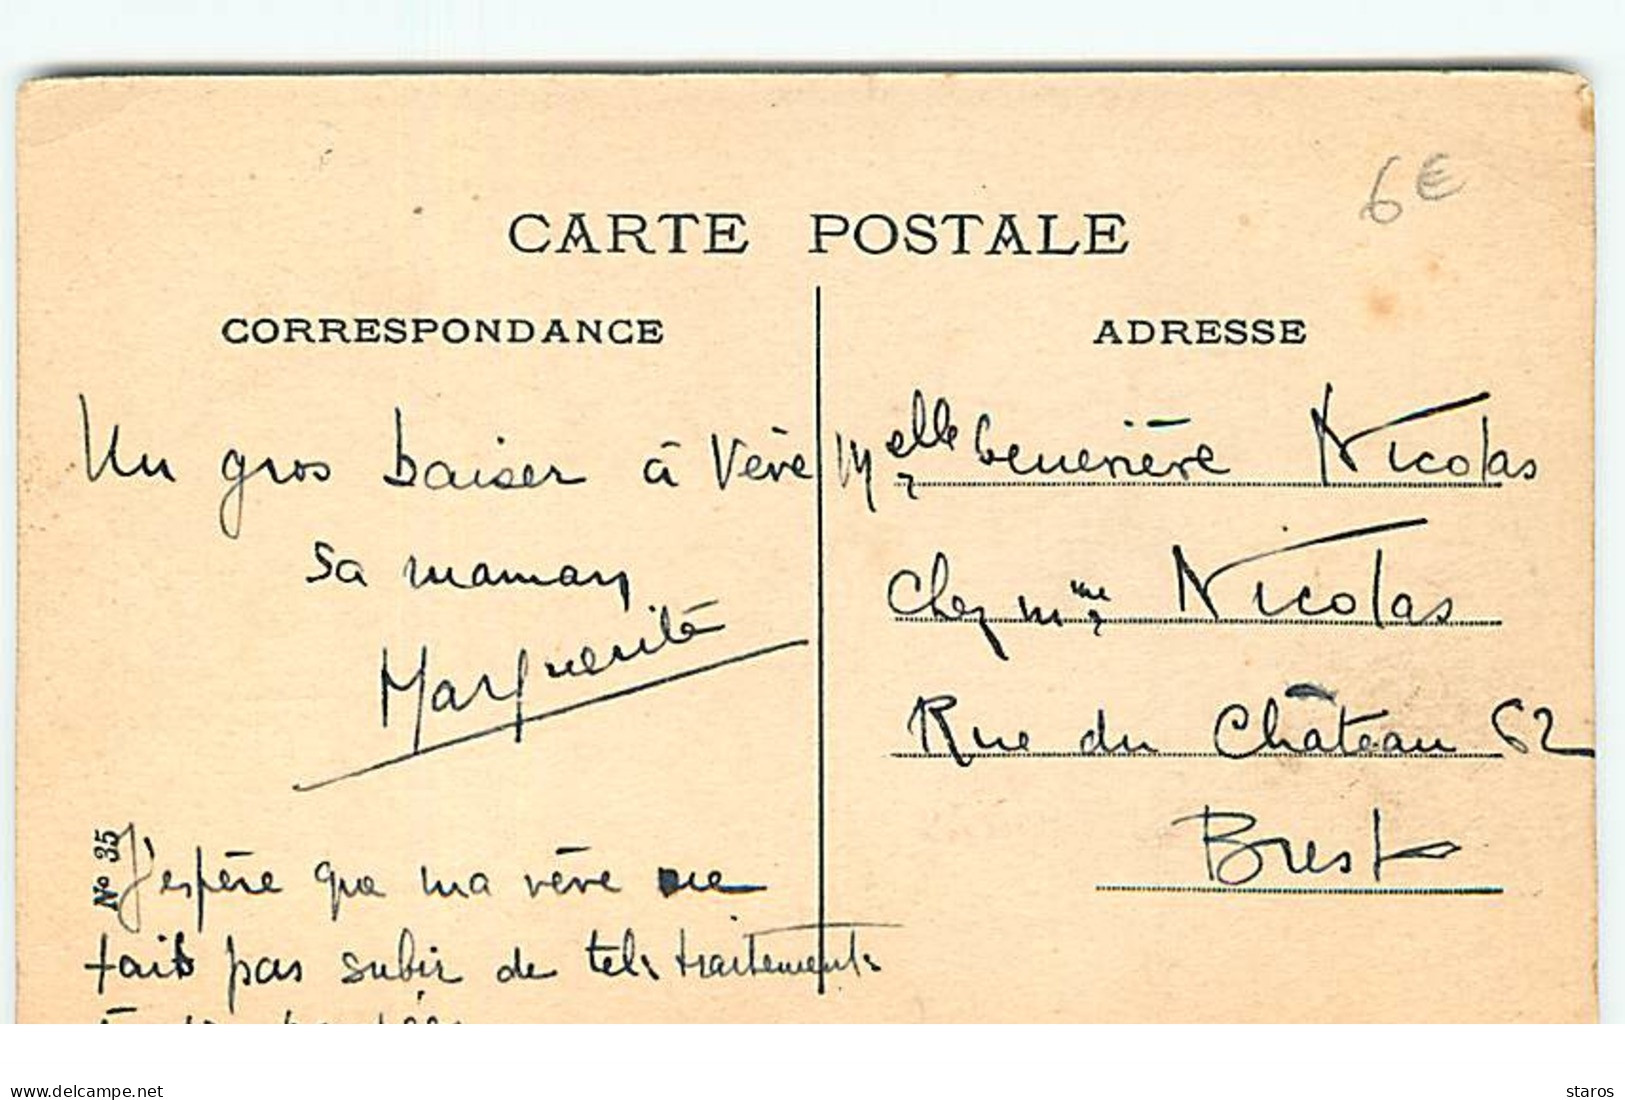 6€
CARTE POSTALE
CORRESPONDANCE
Un gros baiser à Vève
sa maman
Marguerite
N° 35
J'espère que ma vève ne
fait pas subir de tels traitements
ADRESSE
Melle Geneviève Nicolas
Chez Mme Nicolas
Rue du Château 62
Brest
www.delcampe.net
staros